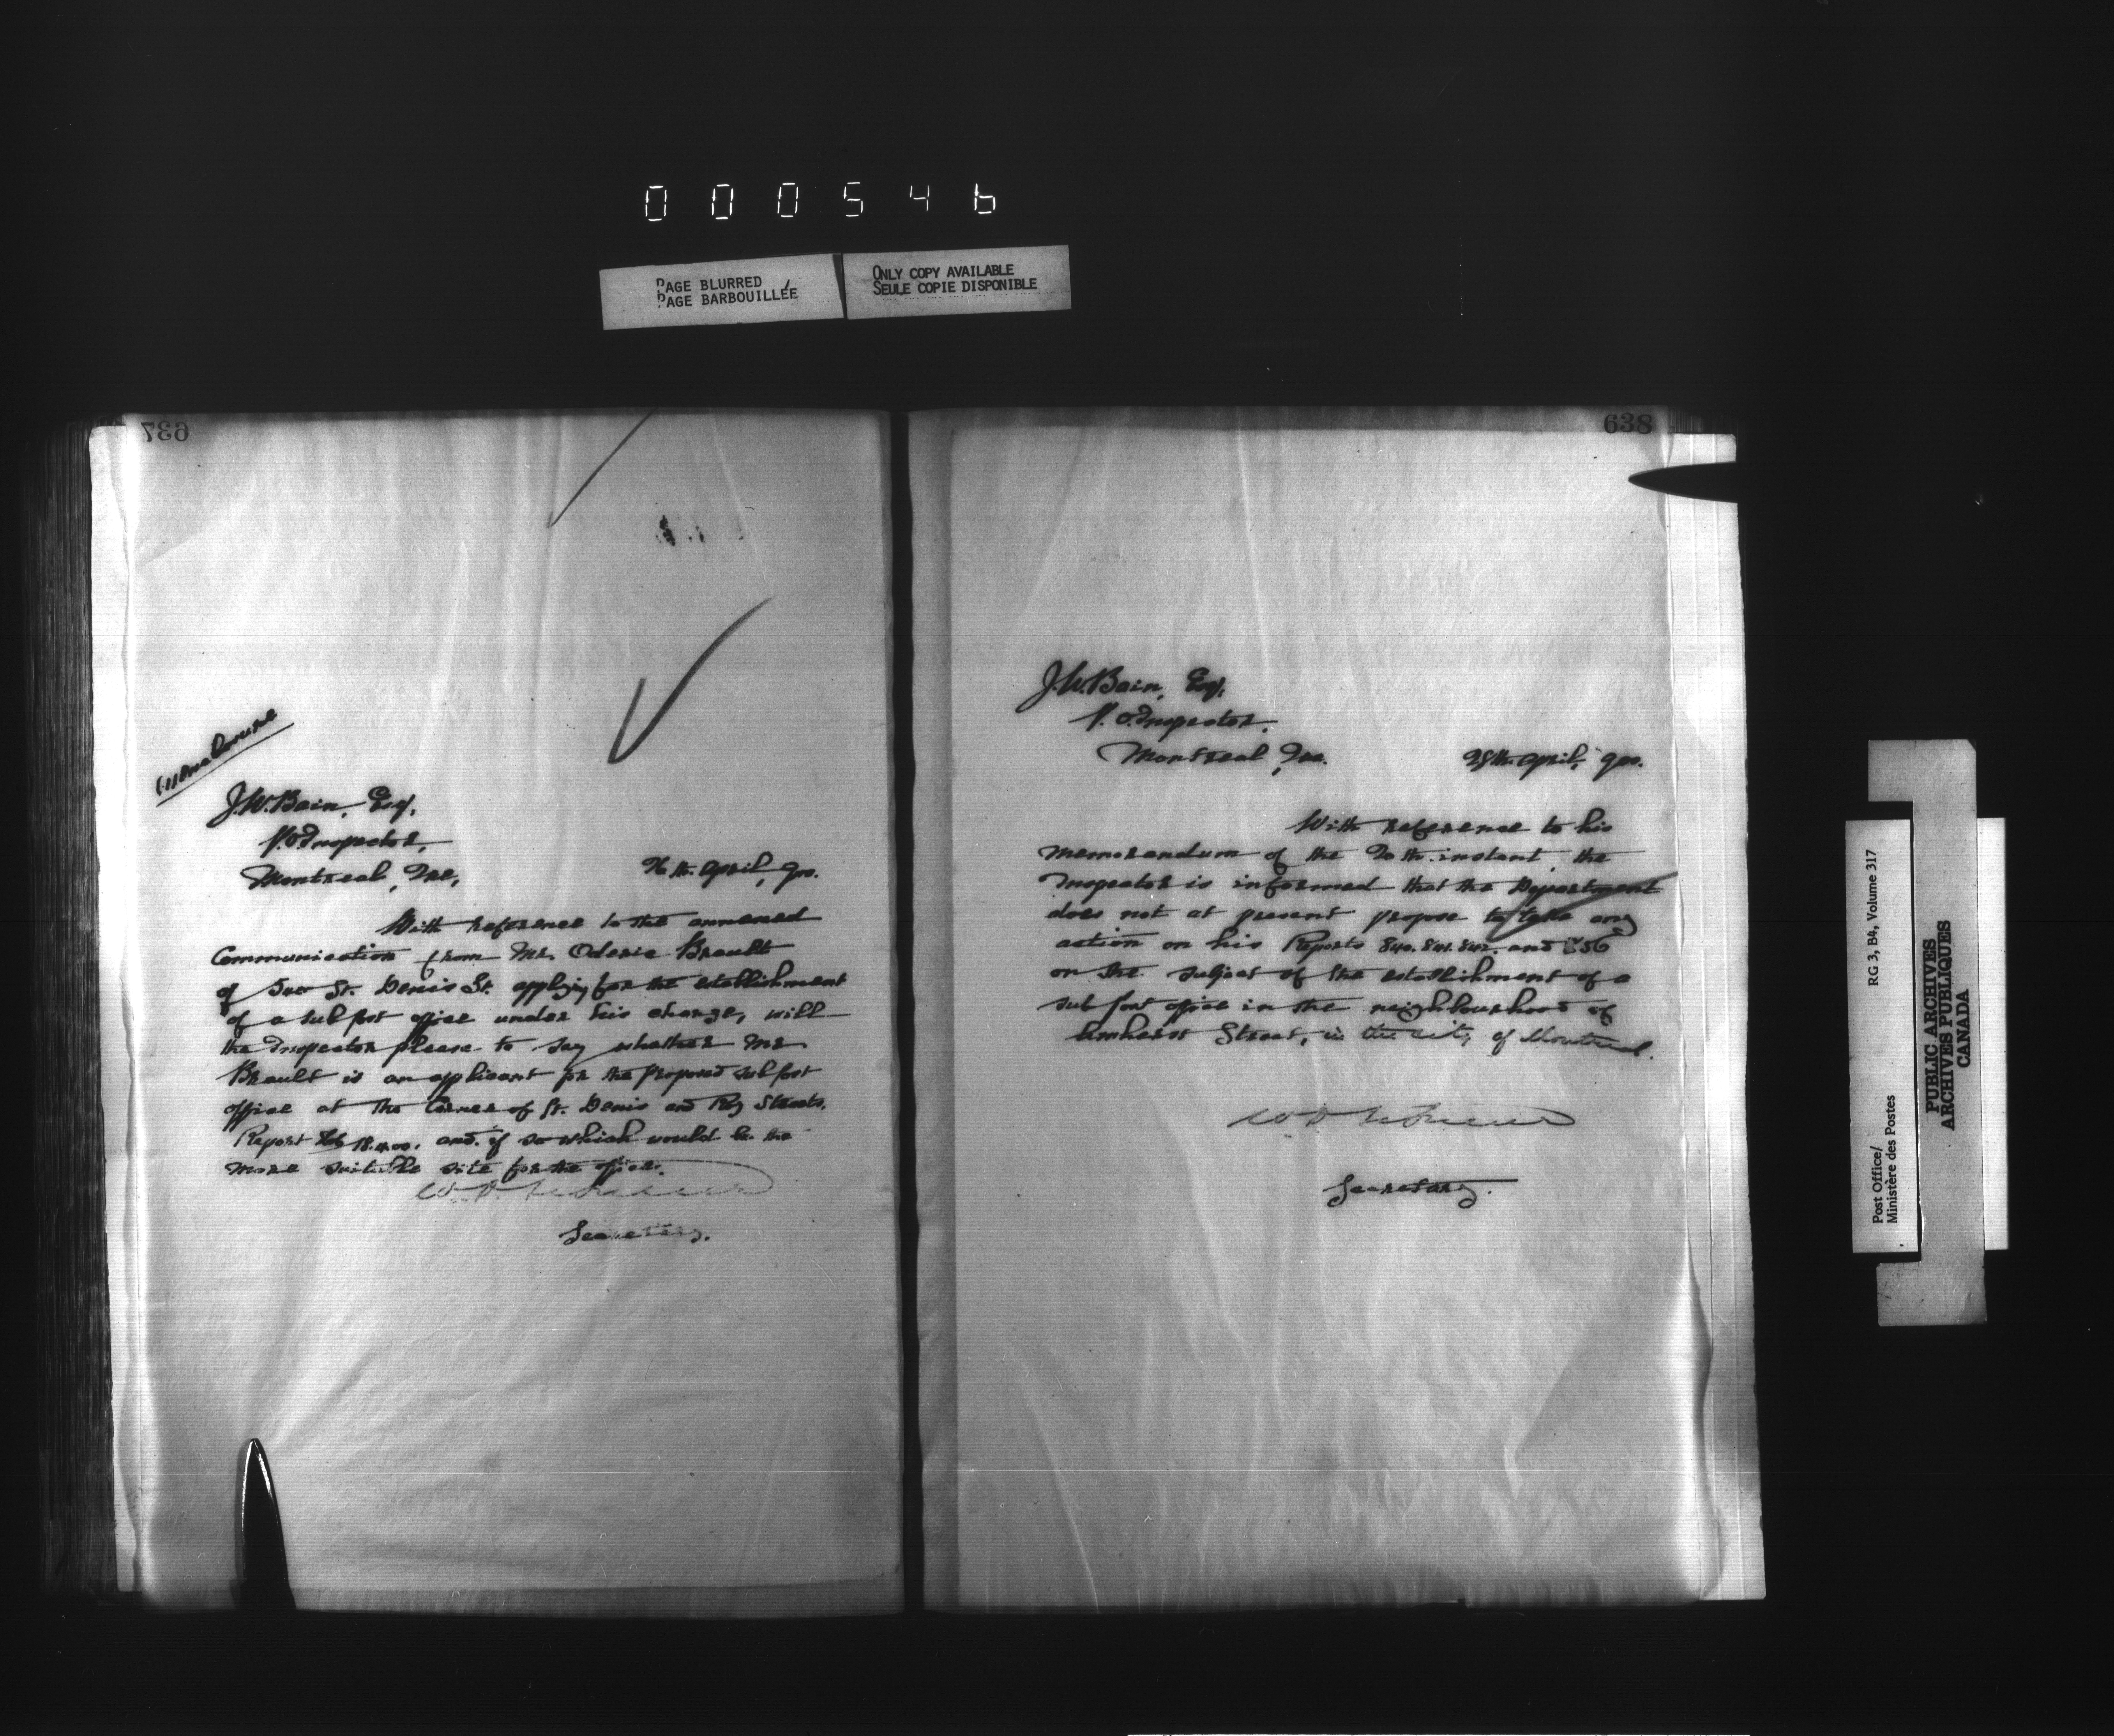 000546
PAGE BLURRED
PAGE BARBOUILLÉE
ONLY COPY AVAILABLE
SEULE COPIE DISPONIBLE
637
J.W. Bain, Esq.
P.O. Inspector,
Montreal, Que,
26th. April, 900.
With reference to the annexed
Communication from Mr. Oderic Brault
of St. Denis St. applying for the establishment
of a sub post office under his charge, will
the Inspector please to say whether Mr.
Brault is an applicant for the proposed sub post
office at the Corner of St. Denis and Roy Streets.
Report and if so which would be the
more suitable site for the office.
Secretary.
638
J.W. Bain, Esq.
P.O. Inspector.
Montreal, Que.
28th April, 900.
With reference to his
Memorandum of the instant, the
Inspector is informed that the Department
does not at present propose to take any
action on his Reports 840. 841. 842. and 856
on the subject of the establishment of a
sub post office in the neighbourhood of
Amherst Street, in the city of Montreal.
Secretary.
RG 3, B4, Volume 317
Post Office/
Ministère des Postes
PUBLIC ARCHIVES
ARCHIVES PUBLIQUES
CANADA